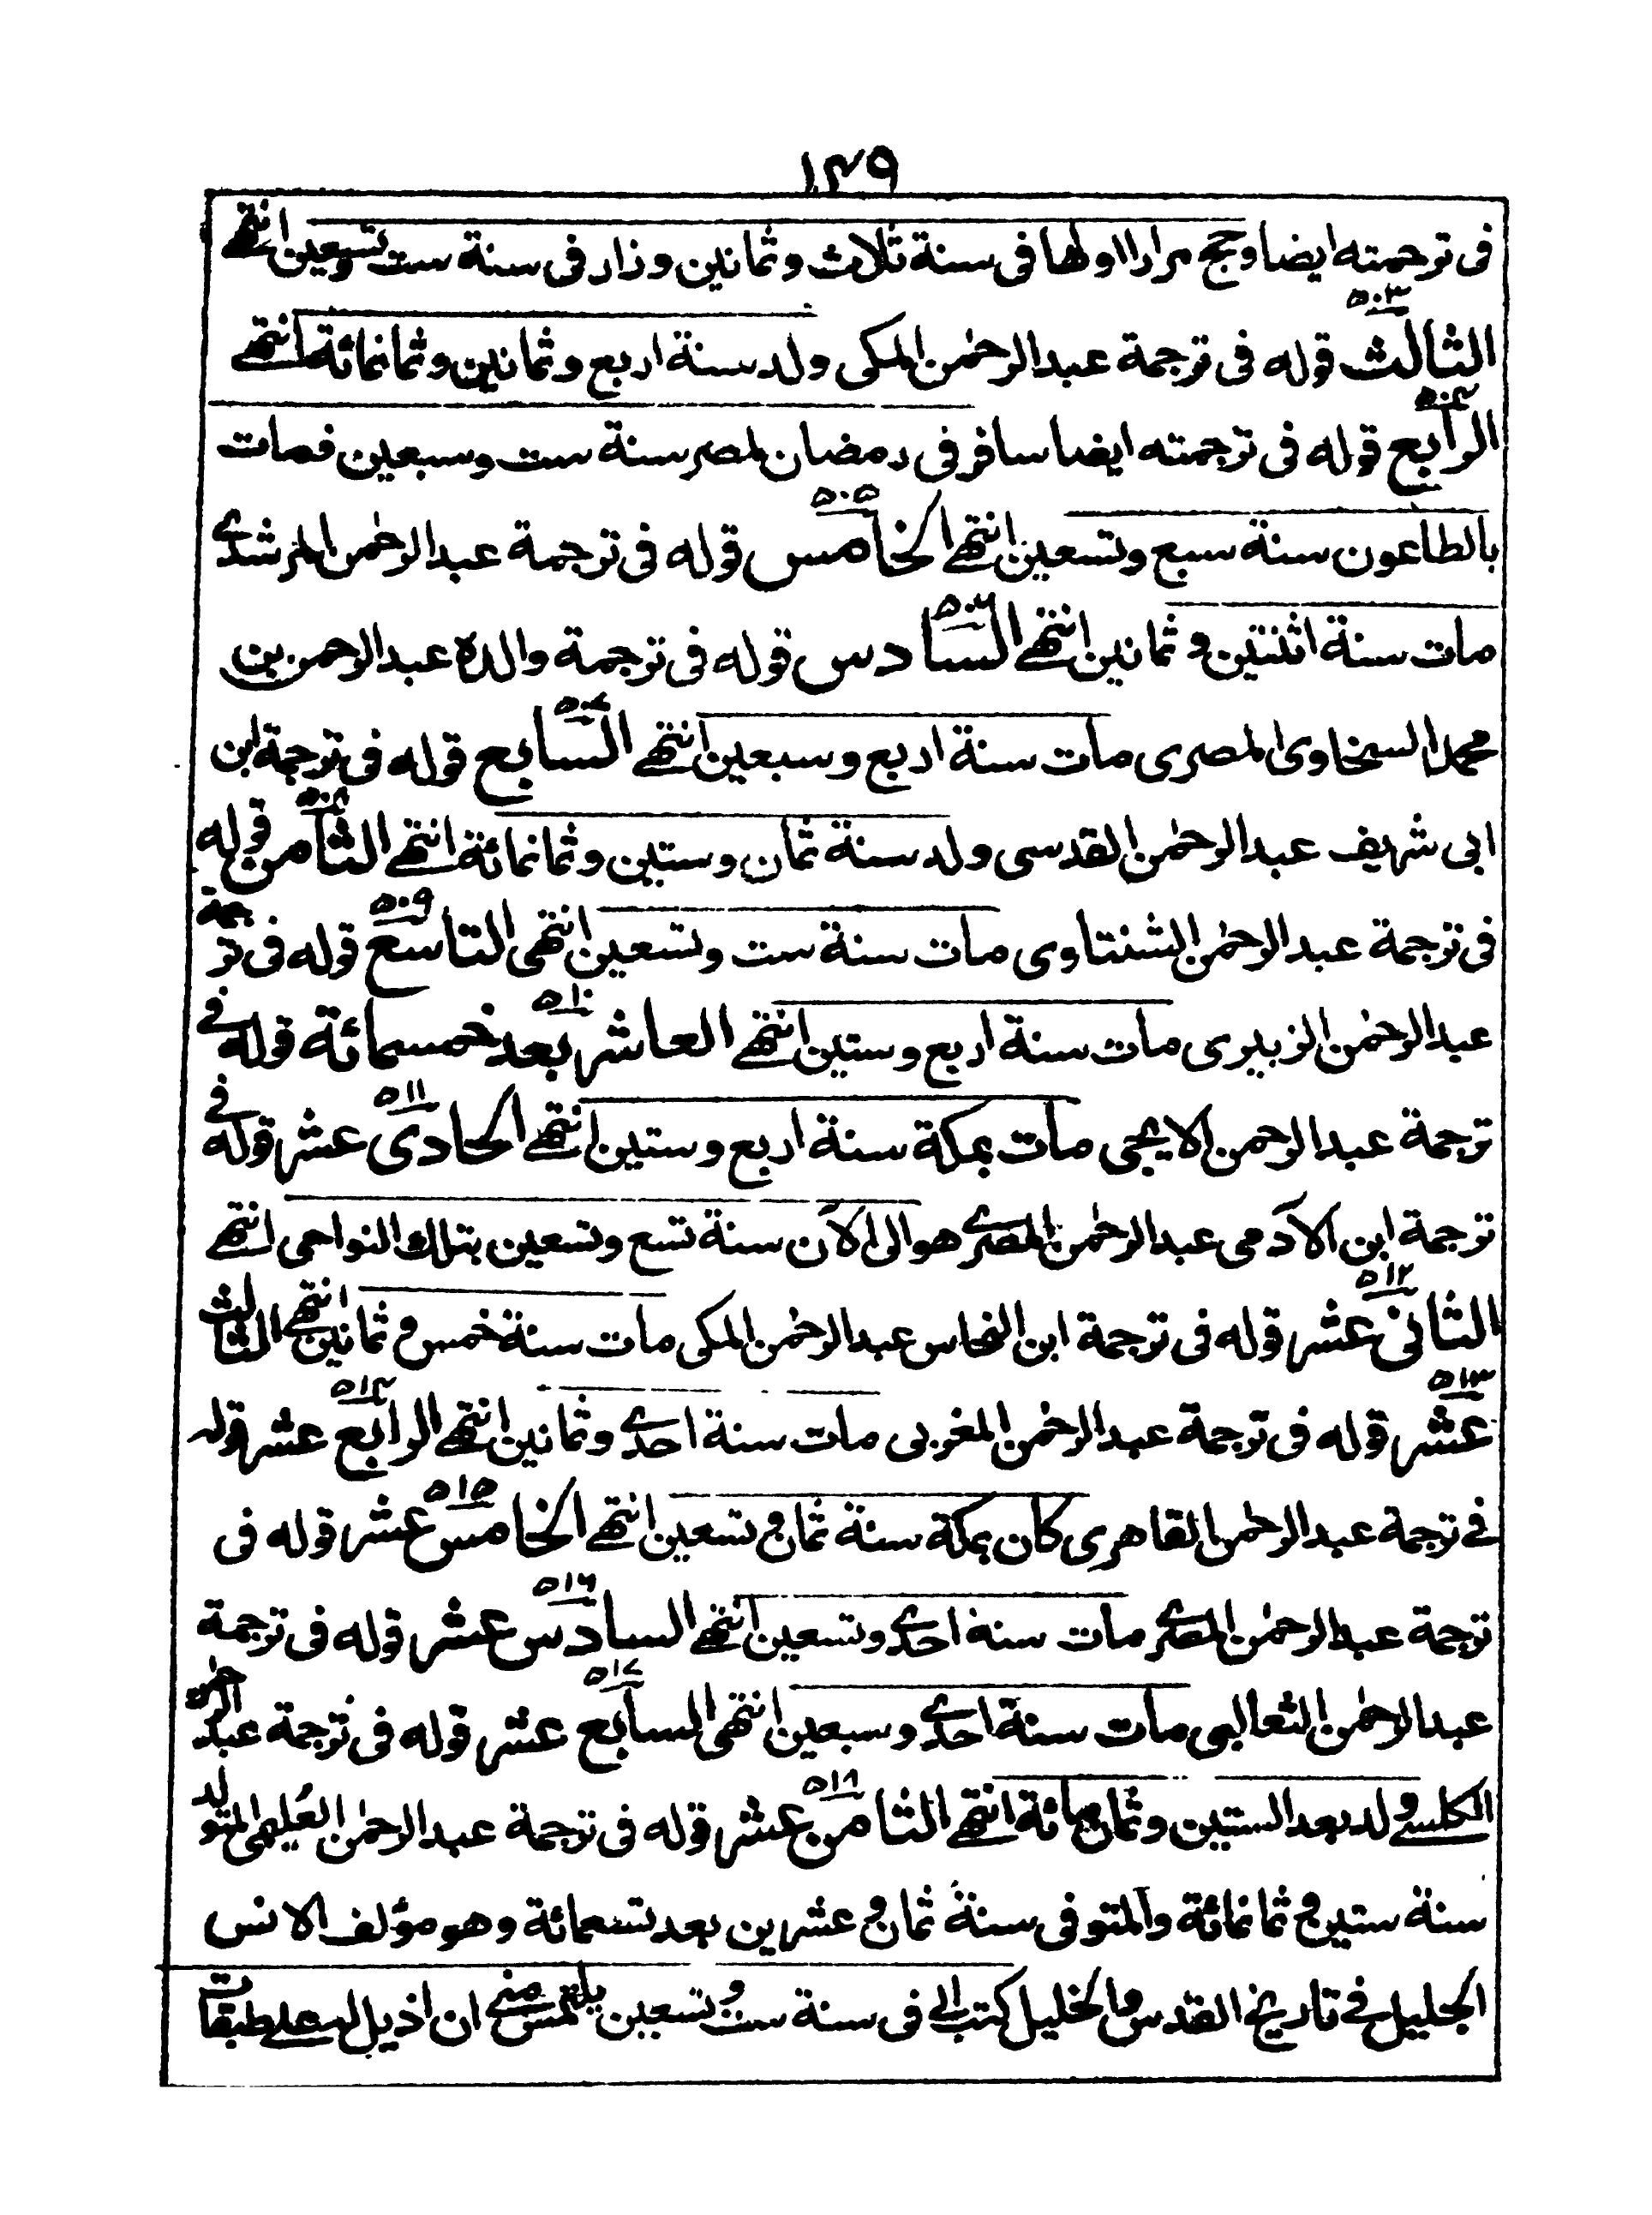 ١٤٩
في ترجمته ايضا وحج مرارا اولها في سنة ثلاث وثمانين وزار في سنة ست وتسعين انتهے
٥٠٣
الثالث قوله في ترجمة عبد الرحمٰن المكي ولد سنة اربع وثمانين وثمانمائة انتهے
٥٠٤
الرابع قوله في ترجمته ايضا سافر في رمضان لمصر سنة ست وسبعين فمات
٥٠٥
بالطاعون سنة سبع وتسعين انتهے الخامس قوله في ترجمة عبد الرحمٰن المرشدے
٥٠٦
مات سنة اثنتين وثمانين انتهے السادس قوله في ترجمة والده عبد الرحمن بن
٥٠٧
محمد السخاوى المصرى مات سنة اربع وسبعين انتهے السابع قوله في ترجمة ابن
٥٠٨
ابي شريف عبد الرحمٰن القدسي ولد سنة ثمان وستين وثمانمائة انتهے الثامن قوله
٥٠٩
في ترجمة عبد الرحمٰن الشنتاوى مات سنة ست وتسعين انتهى التاسع قوله في ترجمة
٥١٠
عبد الرحمٰن الزبيرى مات سنة اربع وستين انتهے العاشر بعد خمسمائة قوله في
٥١١
ترجمة عبد الرحمن الايجي مات بمكة سنة اربع وستين انتهے الحادى عشر قوله في
ترجمة ابن الآدمي عبد الرحمٰن المصرے هو الى الآن سنة تسع وتسعين بتلك النواحي انتهے
٥١٢
الثاني عشر قوله في ترجمة ابن النحاس عبد الرحمٰن المكي مات سنة خمس وثمانين انتهے الثالث
٥١٣ ٥١٤
عشر قوله في ترجمة عبد الرحمٰن المغربي مات سنة احدے وثمانين انتهے الرابع عشر قوله
٥١٥
في ترجمة عبد الرحمٰن القاهرى كان بمكة سنة ثمان وتسعين انتهے الخامس عشر قوله في
٥١٦
ترجمة عبد الرحمٰن المصرے مات سنة احدے وتسعين انتهے السادس عشر قوله في ترجمة
٥١٧
عبد الرحمٰن الثعالبي مات سنة احدے وسبعين انتهى السابع عشر قوله في ترجمة عبد الرحمٰن
٥١٨
الكلسے ولد بعد الستين وثمان مائة انتهے الثامن عشر قوله في ترجمة عبد الرحمٰن العُليمي المتولد
سنة ستين وثمانمائة والمتوفي سنة ثمان وعشرين بعد تسعمائة وهو مؤلف الانس
الجليل في تاريخ القدس والخليل كتب الى في سنة ست وتسعين يلتمس منے ان اذيل له على طبقات